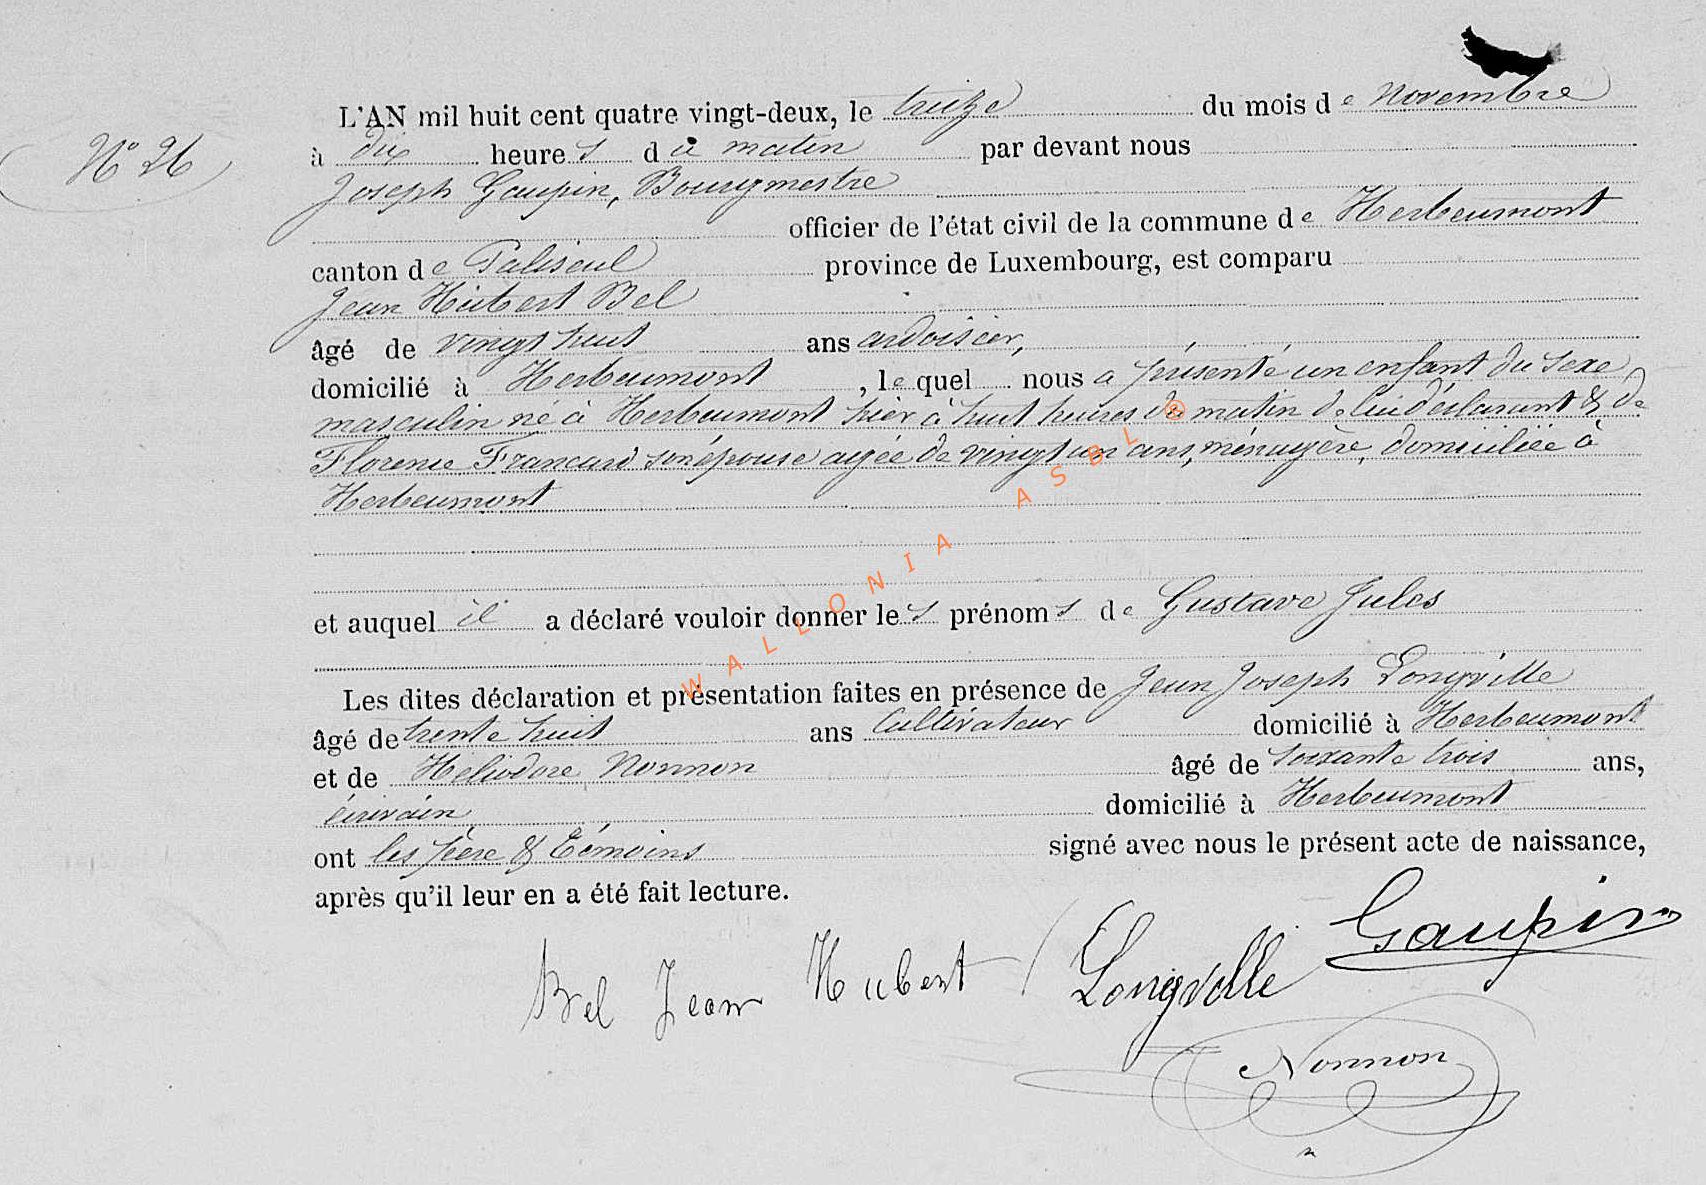 N° 26
L'AN mil huit cent quatre vingt-deux, le treize du mois de Novembre
à dix heures du matin par devant nous
Joseph Gaupin, Bourgmestre
officier de l'état civil de la commune de Herbeumont
canton de Paliseul province de Luxembourg, est comparu
Jean Hubert Bel
âgé de vingt huit ans ardoisier,
domicilié à Herbeumont, lequel nous a présenté un enfant du sexe
masculin né à Herbeumont hier à huit heures du matin de lui déclarant & de
Florence Francard son épouse agée de vingt un ans, ménagère, domiciliée à
Herbeumont
et auquel il a déclaré vouloir donner les prénoms de Gustave Jules
Les dites déclaration et présentation faites en présence de Jean Joseph Longville
âgé de trente huit ans Cultivateur domicilié à Herbeumont
et de Héliodore Nonnon âgé de soixante trois ans,
écrivain domicilié à Herbeumont
ont les père & témoins signé avec nous le présent acte de naissance,
après qu'il leur en a été fait lecture.
Bel Jean Hubert Longville Gaupin
Nonnon
WALLONIA ASBL ®